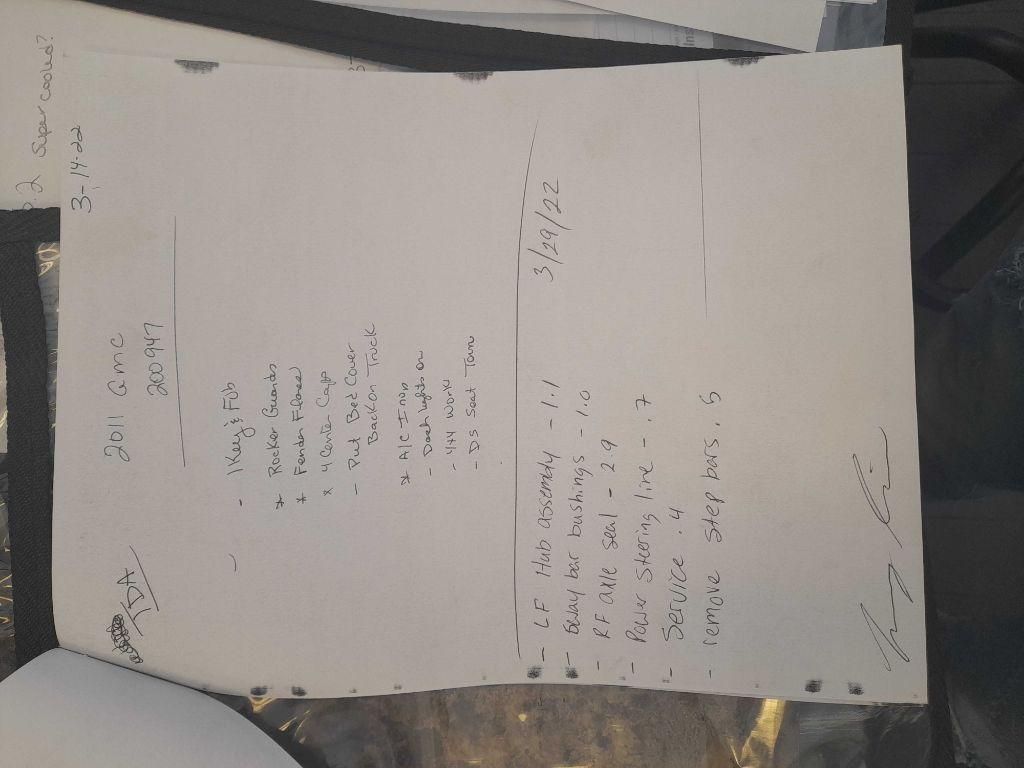 2 Super cooled?
3-14-22
TDA
2011 GMC
200947
- 1 Key & Fob
* Rocker Guards
* Fender Flares
* 4 Center Caps
- Put Bed Cover
Back on Truck
* A/C Inop
- Dash lights on
- 4x4 Work
- DS Seat Torn
3/29/22
- LF Hub assembly - 1.1
- Sway bar bushings - 1.0
- RF axle seal - 2.9
- Power Steering line - .7
- Service .4
- remove step bars .5